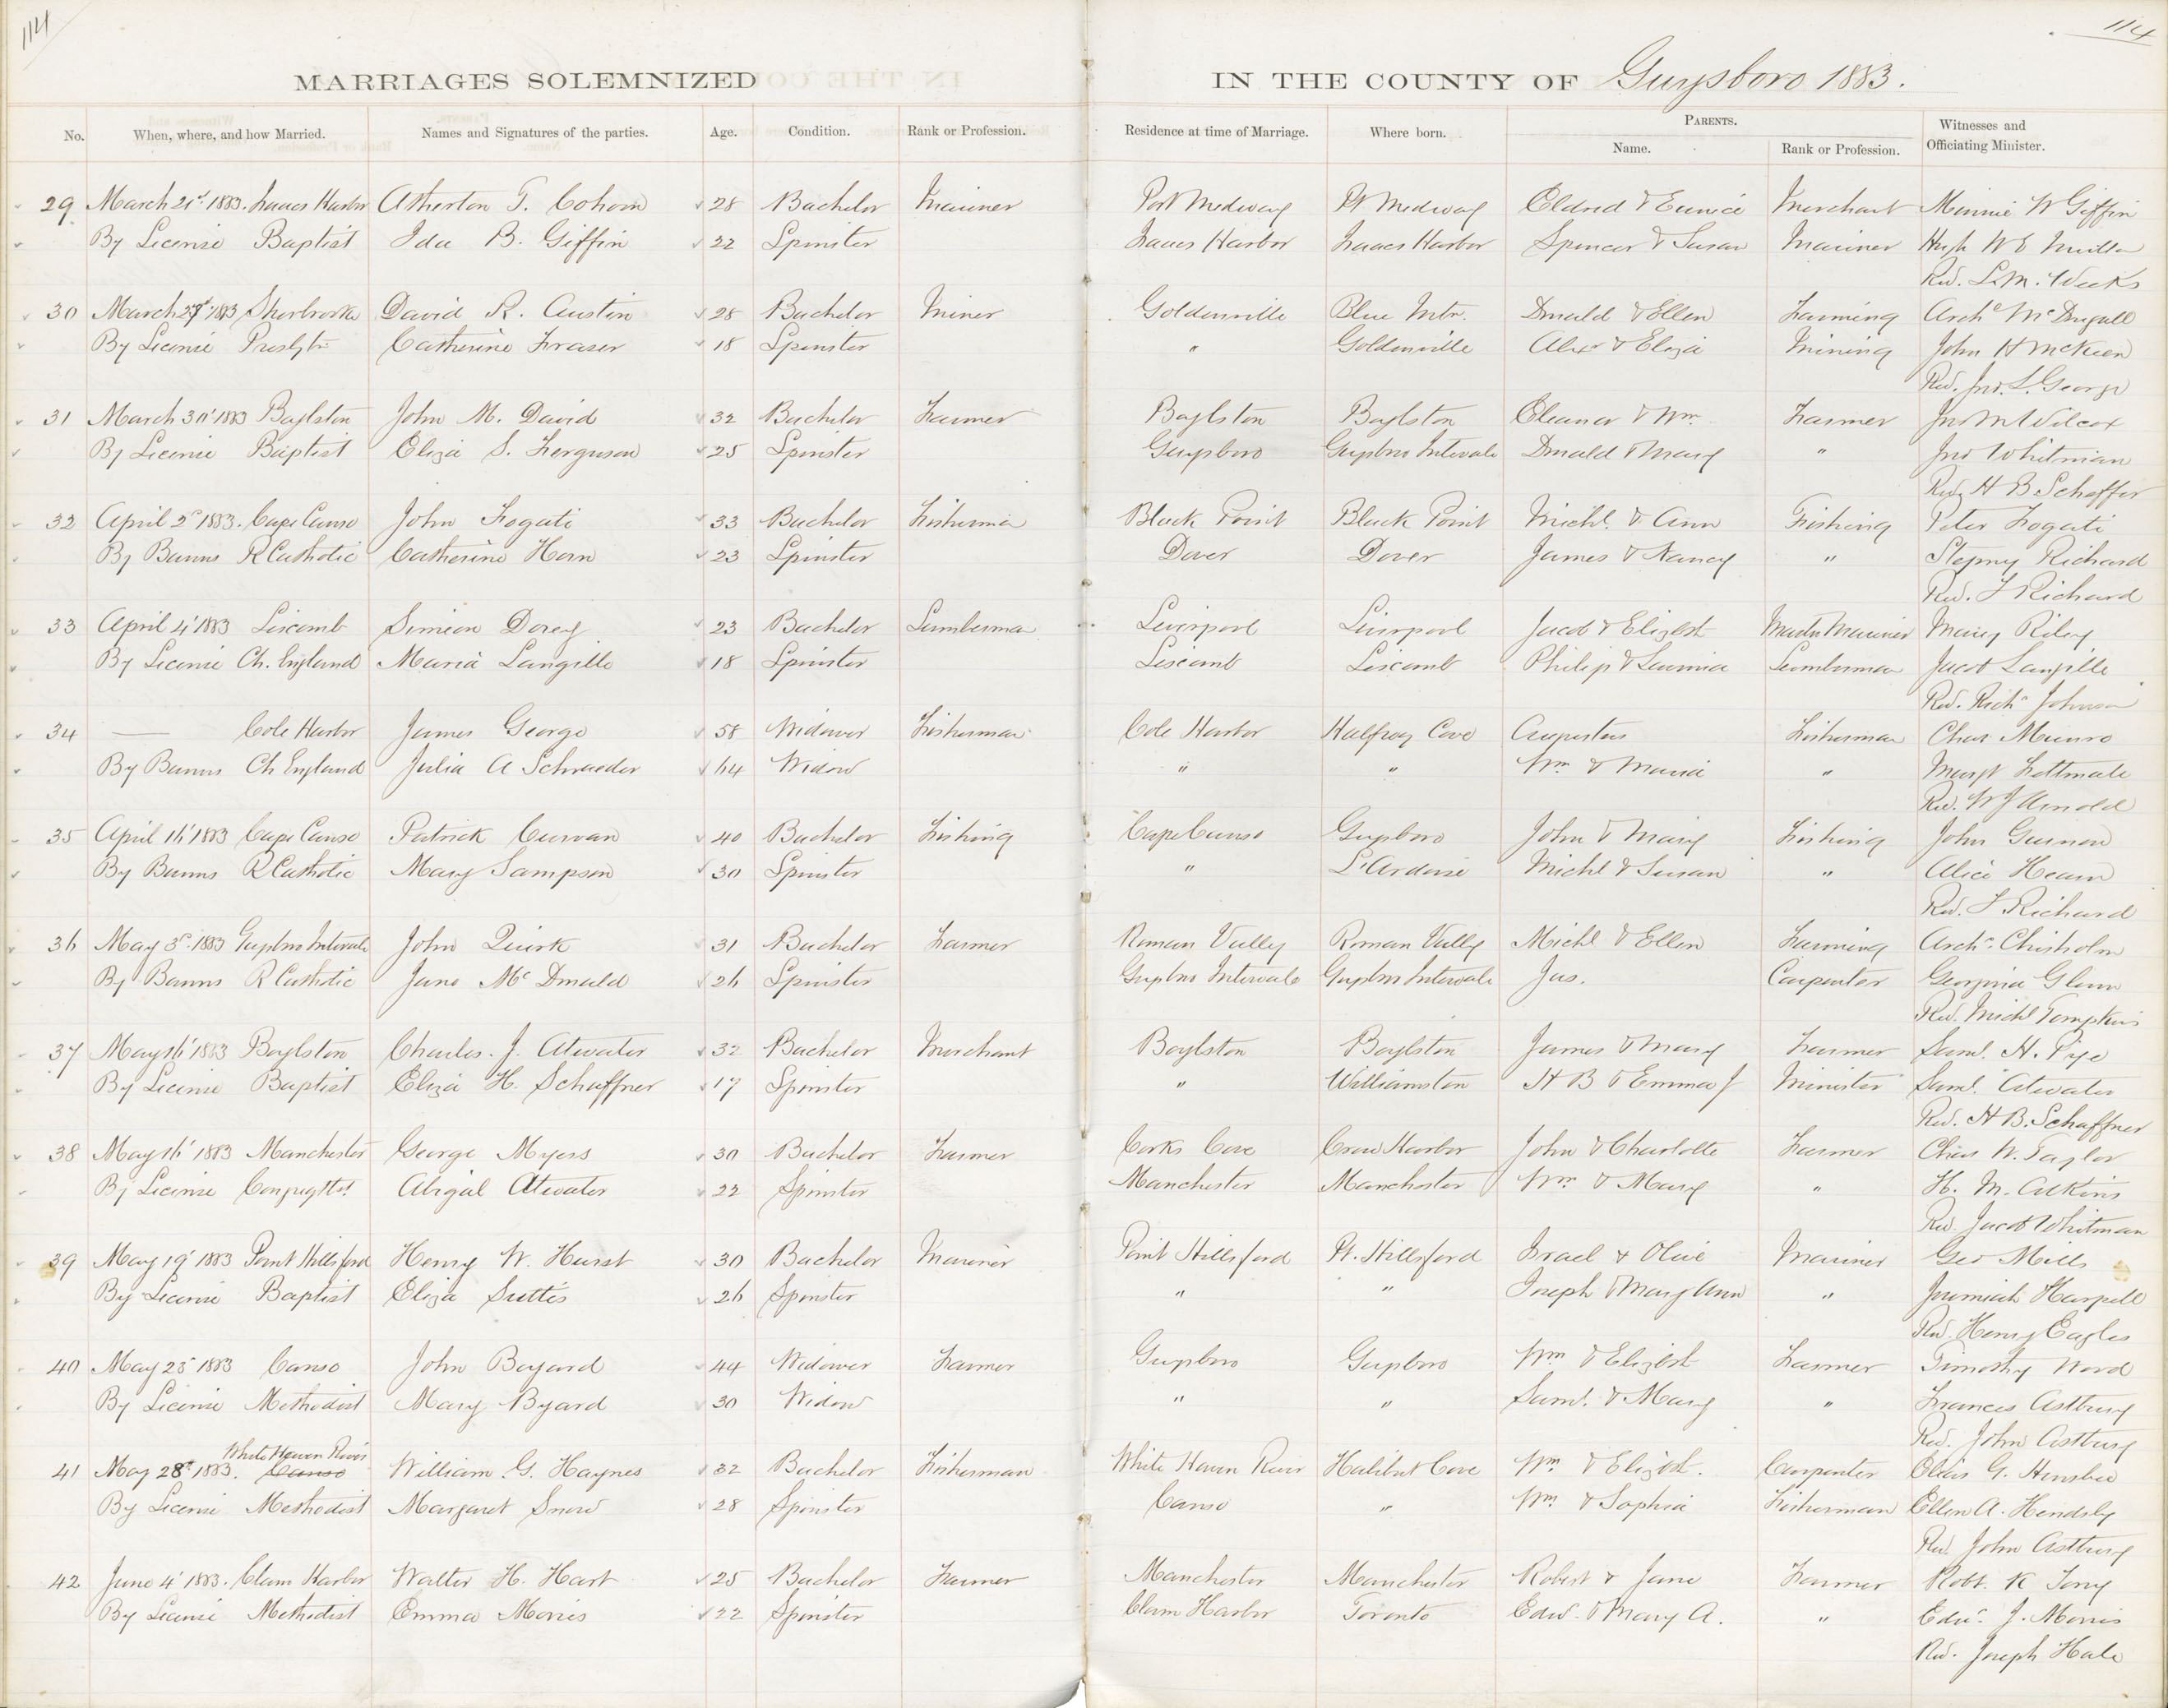 114
114
MARRIAGES SOLEMNIZED IN THE COUNTY OF Guysboro 1883.
No. When, where, and how Married. Names and Signatures of the parties. Age. Condition. Rank or Profession. Residence at time of Marriage. Where born. PARENTS. Name. Rank or Profession. Witnesses and Officiating Minister.
29 March 21st 1883. Isaacs Harbor Atherton T. Cohoon 28 Bachelor Mariner Port Medway Pt Medway Eldred & Eunice Merchant Minnie W Giffin
By License Baptist Ida B. Giffin 22 Spinster Isaacs Harbor Isaacs Harbor Spencer & Susan Mariner Hugh W E
Rev. L. M. Weeks
30 March 1883 Sherbrooke David R. Austin 28 Bachelor Miner Goldenville Blue Mtn. Donald & Ellen Farming Archd McDugall
By License Presbytn Catherine Fraser 18 Spinster " Goldenville Alexr & Eliza Mining John H McKeen
Rev. Jno. L. George
31 March 30' 1883 Boylston John M. David 32 Bachelor Farmer Boylston Boylston Eleanor & Wm. Farmer Jno M Wilcox
By License Baptist Eliza S. Ferguson 25 Spinster Guysboro Guysbro Intervale Donald & Mary " Jno Whitman
Rev. H B Schaffer
32 April 2d 1883. Cape Canso John Fogati 33 Bachelor Fisherma Black Point Black Point Michl. & Ann Fishing Peter Fogati
By Banns R Catholic Catherine Horn 23 Spinster Dover Dover James & Nancy " Richard
Rev. F Richard
33 April 4' 1883 Liscomb Simeon Dorey 23 Bachelor Lumberma Liverpool Liverpool Jacob & Elizbt Master Mariner Mary Riley
By License Ch. England Maria Langille 18 Spinster Liscomb Liscomb Philip & Lavinia Lumberman Jacob Langille
Rev. Richd Johnson
34 — Cole Harbor James George 58 Widower Fisherman Cole Harbor Halfway Cove Augustus Fisherman Chas Munro
By Banns Ch England Julia A Schraeder 64 Widow " " Wm & Maria " Margt
Rev. W J Arnold
35 April 16' 1883 Cape Canso Patrick Curvan 40 Bachelor Fishing Cape Canso Guysboro John & Mary Fishing John
By Banns R Catholic Mary Sampson 30 Spinster " L'Ardoise Michl & Susan " Alice Hearn
Rev. F Richard
36 May 3d 1883 Guysbro Intervale John Quirk 31 Bachelor Farmer Roman Vally Roman Vally Michl & Ellen Farming Archd. Chisholm
By Banns R Catholic Jane McDonald 26 Spinster Guysbro Intervale Guysbro Intervale Jas. Carpenter Georgina Glenn
Rev. Michl Tompkins
37 May 16' 1883 Boylston Charles. J. Atwater 32 Bachelor Merchant Boylston Boylston James & Mary Farmer Saml. H. Pye
By License Baptist Eliza H. Schaffner 17 Spinster " Williamston H B & Emma J Minister Saml. Atwater
Rev. H B. Schaffner
38 May 16' 1883 Manchester George Myers 30 Bachelor Farmer Corks Cove Crow Harbor John & Charlotte Farmer Chas W. Taylor
By License Congregtl. Abigal Atwater 22 Spinster Manchester Manchester Wm & Mary " H. M. Atkins
Rev. Jacob Whitman
39 May 19' 1883 Point Hillsford Henry W. Hurst 30 Bachelor Mariner Point Hillsford Pt. Hillsford Israel & Olive Mariner Geo Mills
By License Baptist Eliza Suttis 26 Spinster " " Joseph & Mary Ann " Jeremiah Harpell
Rev. Henry Eagles
40 May 25' 1883 Canso John Boyard 44 Widower Farmer Guysboro Guysboro Wm & Elizbt Farmer Timothy Word
By License Methodist Mary Byard 30 Widow " " Saml. & Mary " Frances Astbury
Rev. John Astbury
White Haven River
41 May 28th 1883. Canso William. G. Haynes 32 Bachelor Fisherman White Haven River Halibut Cove Wm & Elizbt. Carpenter G.
By License Methodist Margaret Snow 28 Spinster Canso " Wm & Sophia Fisherman Ellen A. Hendsby
Rev. John Astbury
42 June 4' 1883. Clam Harbor Walter H. Hart 25 Bachelor Farmer Manchester Manchester Robert & Jane Farmer Robt. K Tory
By License Methodist Emma Morris 22 Spinster Clam Harbor Toronto Edw. & Mary A. " Edwd. J. Morris
Rev. Joseph Hale